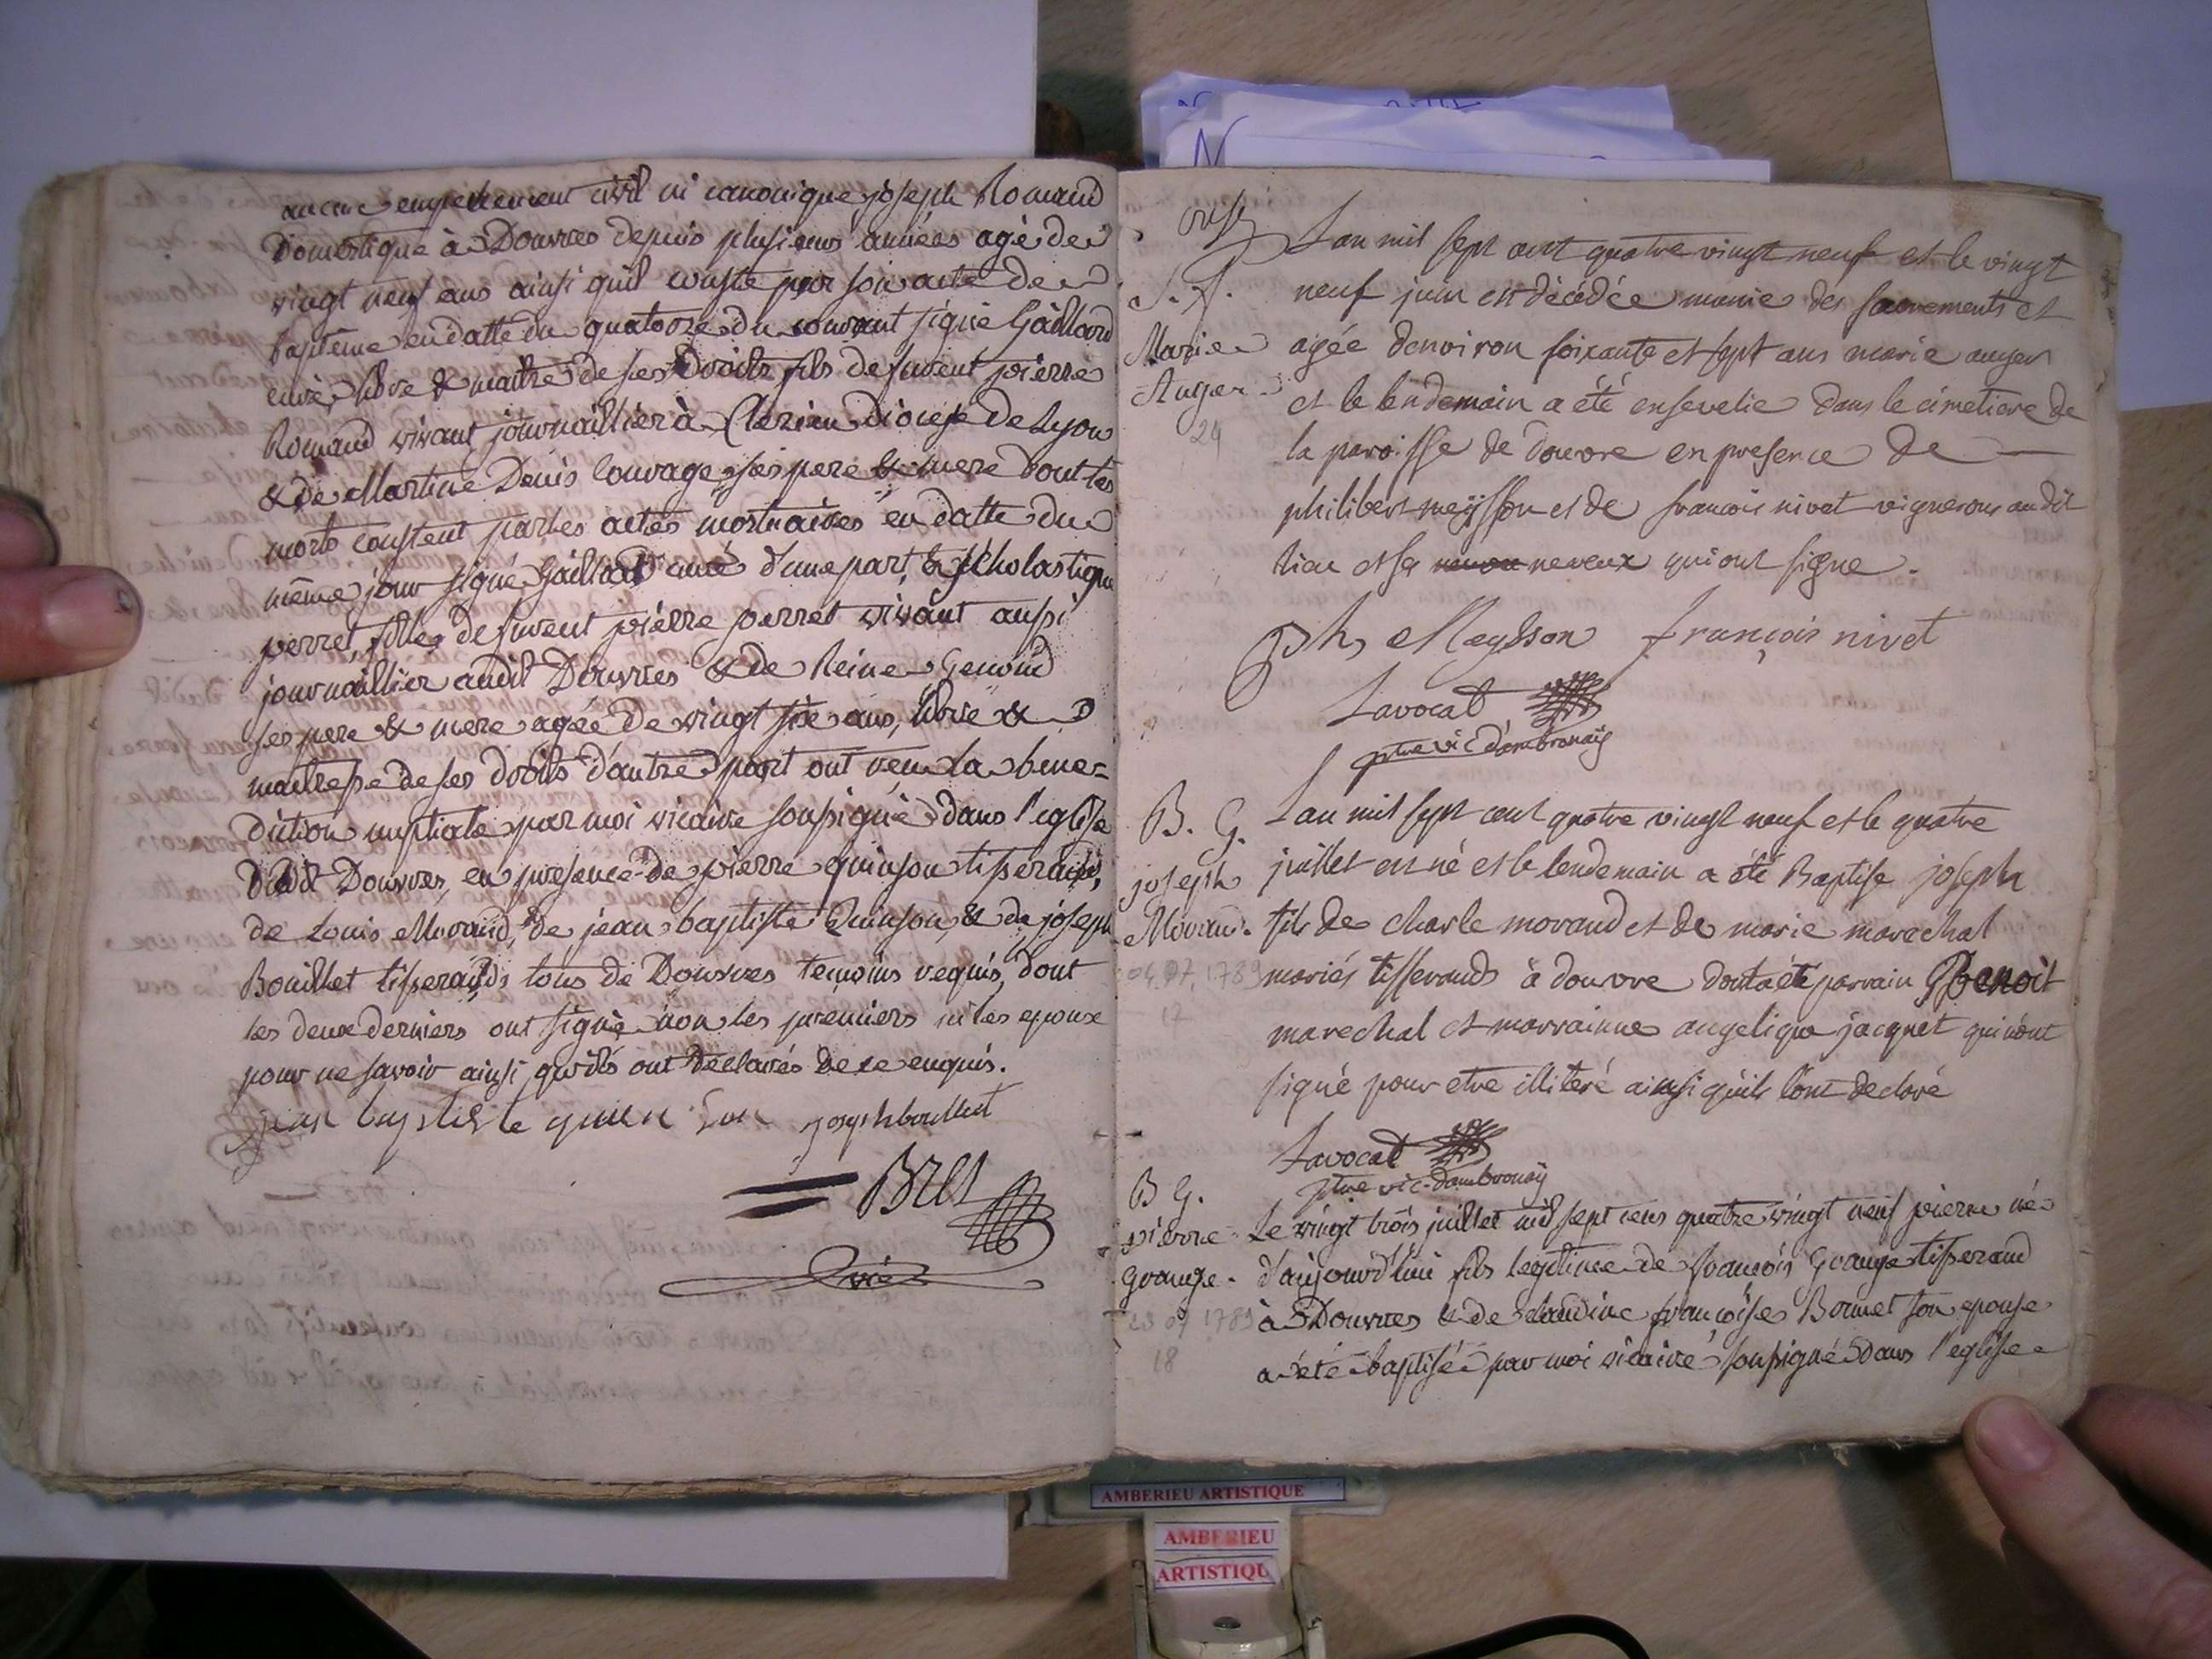 aucune empechement civil ni canonique, joseph Romand
Domestique à Douvres depuis plusieurs années agé de
vingt neuf ans ainsi quil conste par son acte de
baptême en datte du quatorze du courant signé Gaillard
curé, libre & maitre de ses droits fils de fuent pierre
Romand vivant journaillier à diocese de Lyon
& de Martine Denis Louvrage, ses pere & mere dont les
morts constent par les actes mortuaires en datte du
même jour signé Gaillard curé d'une part, & scholastique
perret, fille de fuent pierre perret vivant aussi
journaillier audit Douvres & de Reine Genoud
ses pere & mere agée de vingt six ans, libre &
maitresse de ses droits d'autre part ont reçu la bene=
diction nuptiale par moi vicaire soussigné dans l'eglise
dudit Douvres, en presence de pierre quinson tisserand,
de Louis Morand, de jean baptiste Quinson, & de joseph
Bouillet tisserands tous de Douvres temoins requis, dont
les deux derniers ont signé non les premiers ni les epoux
pour ne savoir ainsi qu'ils ont déclarés de ce enquis.
jean baptiste quinson joseph bouillet
Bret
vic
L'an mil sept cent quatre vingt neuf et le vingt
S.
Marie
Auger
24
neuf juin est décédée munie des sacrements et
agée denviron soixante et sept ans marie auger
et le lendemain a été ensevelie dans le cimetiere de
la paroisse de douvre en presence de
philibert meysson et de francois nivet vignerons audit
lieu et ses neveux qui ont signe.
Ph, Meysson françois nivet
Lavocat
ptre vic d'ambronaÿ
B. G.
joseph
Morand.
04.07.1789
17
L'an mil sept cent quatre vingt neuf et le quatre
juillet est né et le lendemain a été Baptise joseph
fils de charle morand et de marie marechal
mariés tisserands à douvre dont a été parrain Benoit
marechal et marrainne angelique jacquet qui n'ont
signé pour etre illiteré ainsi qu'ils l'ont declaré
Lavocat
ptre vic. d'ambronaÿ
B G.
pierre
Grange.
23 07 1789
18
Le vingt trois juillet mil sept cens quatre vingt neuf pierre né
d'aujourd'hui fils legitime de François Grange tisserand
à Douvres & de claudine françoise Bonnet son epouse
a été baptisé par moi vicaire soussigné dans l'eglise
AMBERIEU ARTISTIQUE
AMBERIEU
ARTISTIQU